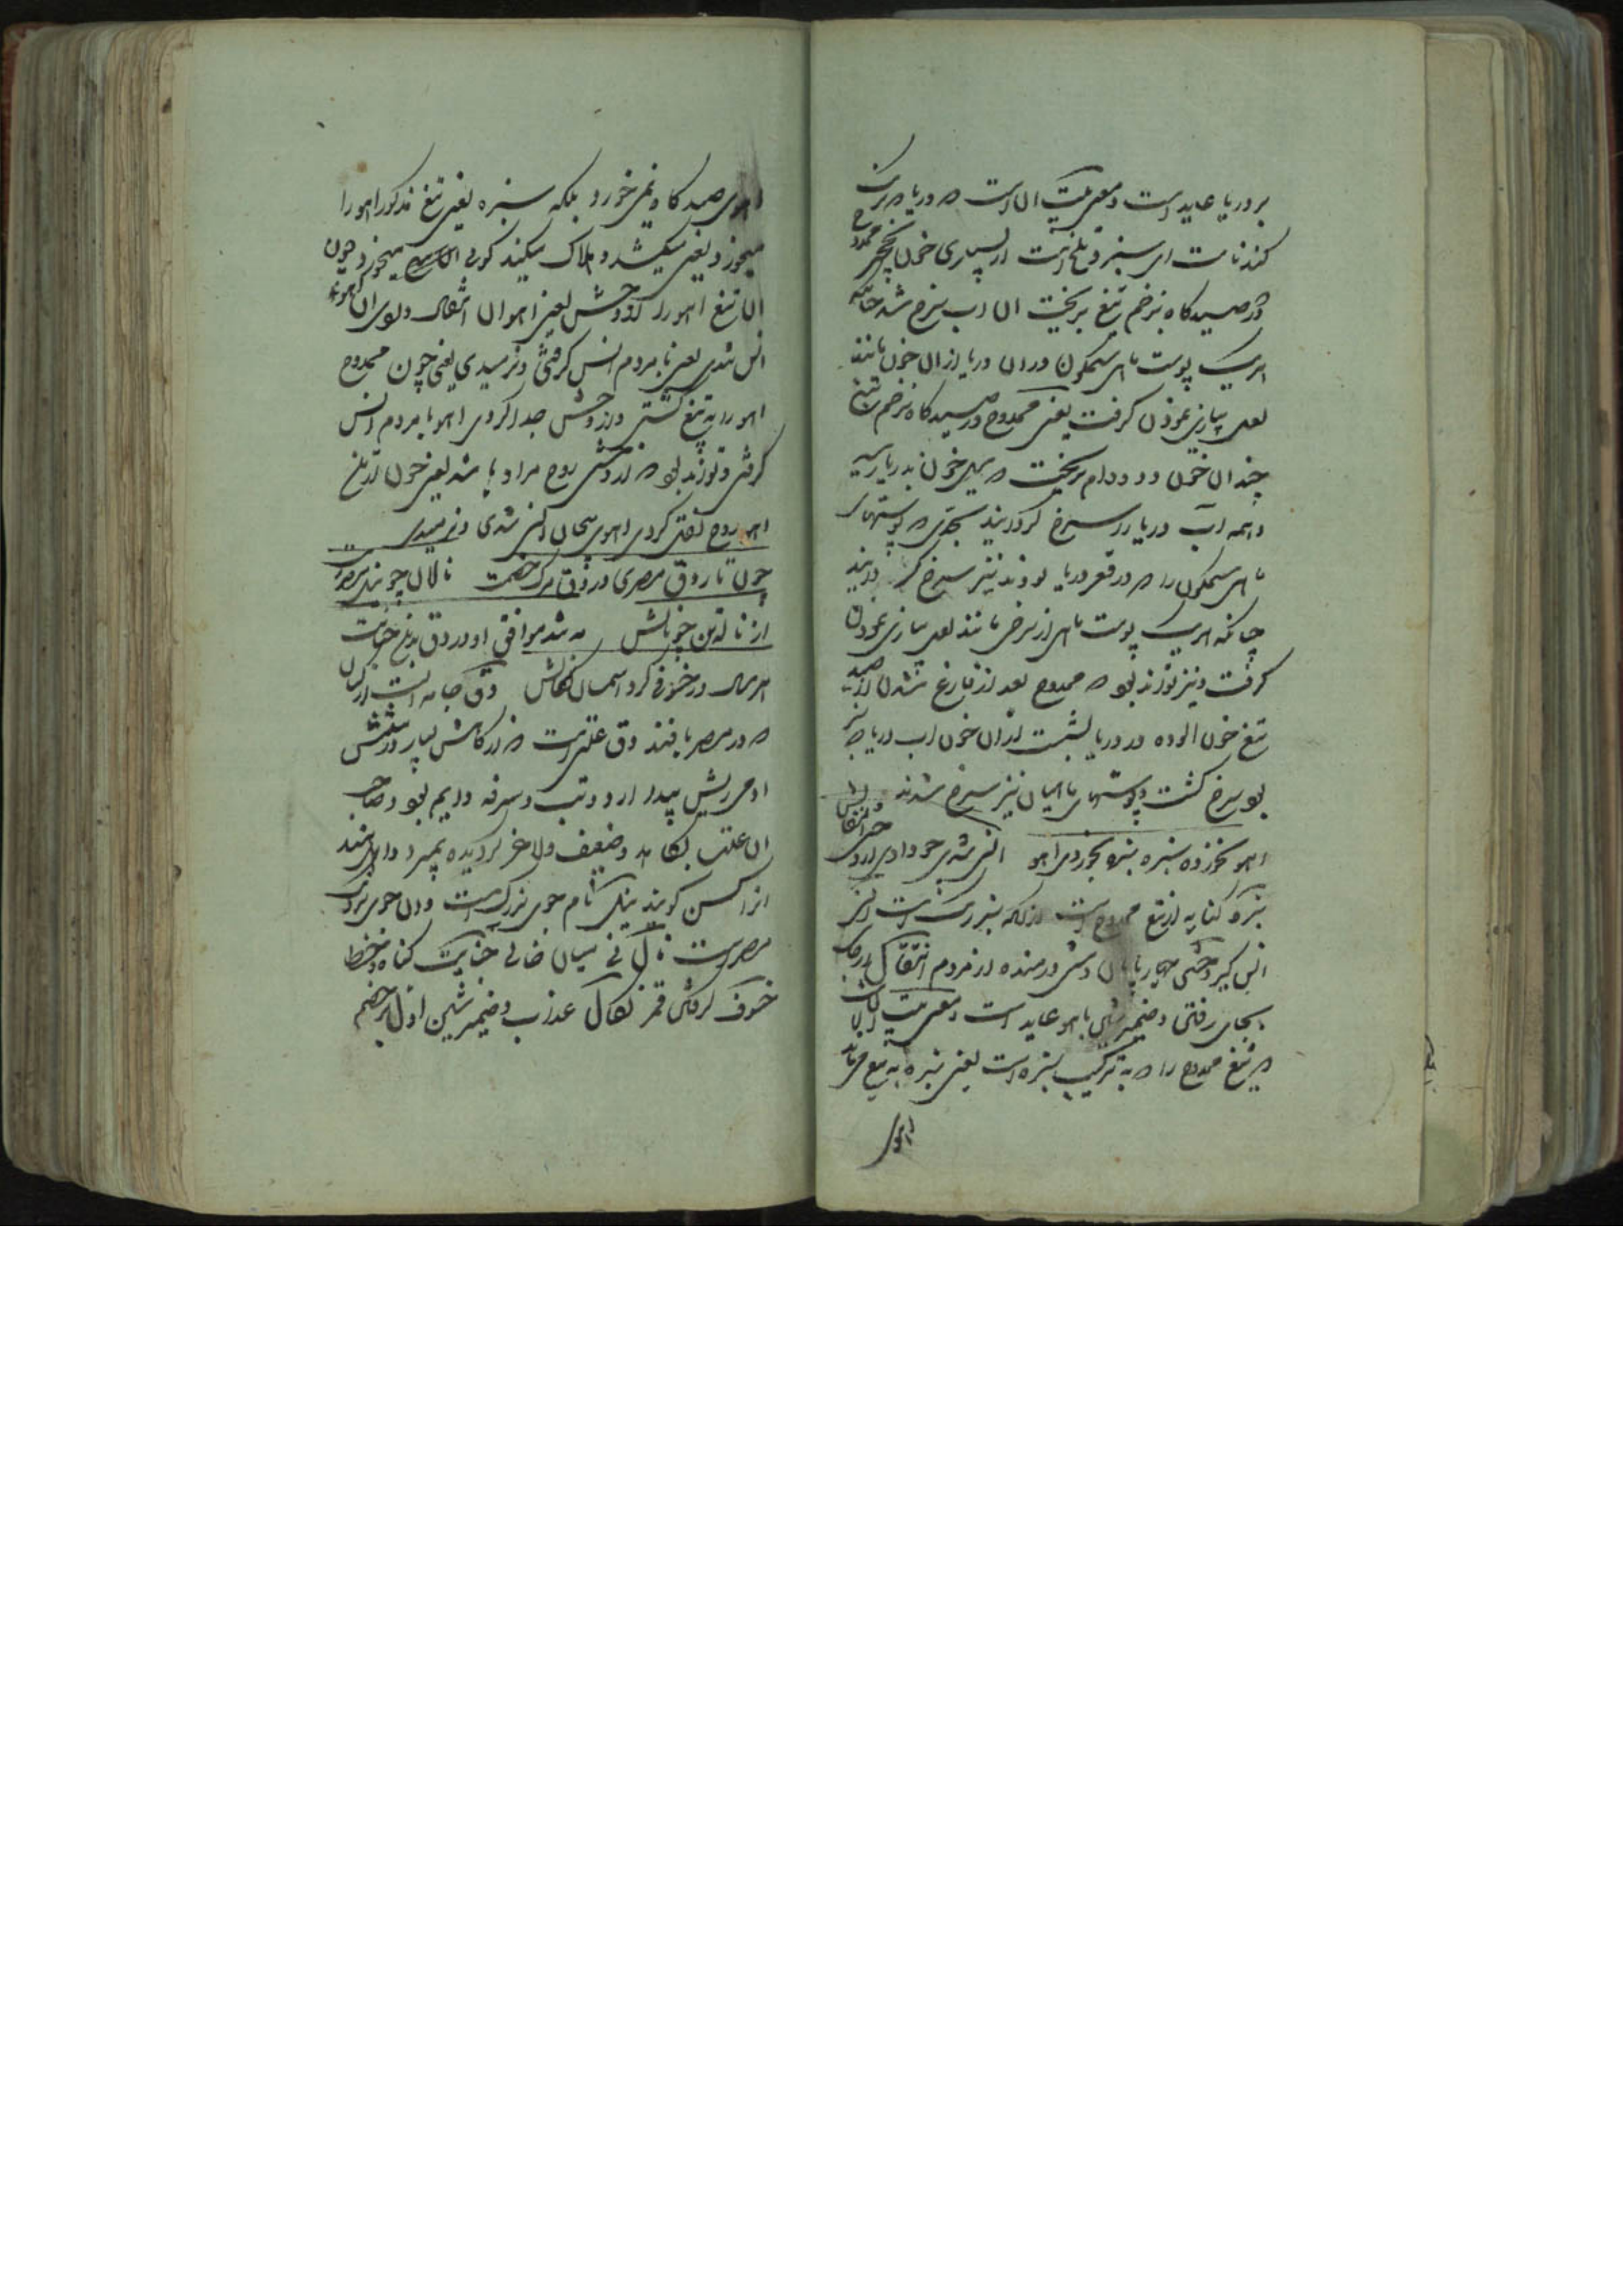 بر دریا عاید است و معنی بیت آن است که دریا که رنگ
کندناست ای سبز و تلخ است از بسیاری خون نخجیر ممدوح
در صیدگاه بزخم تیغ بریخت آن آب سرخ شد چنانکه
هر یک پوست ماهی سیمگون در آن دریا از آن خون مانند
لعل پیازی نمودن گرفت یعنی ممدوح در صیدگاه بزخم تیغ
چندان خون دد و دام بریخت که سیل خون بدریا رسید
و همه آب دریا را سرخ گردانید بحدی که پوستهای
ماهی سیمگون را که در قعر دریا بودند نیز سرخ گردانید
چنانکه هر یک پوست ماهی از سرخی مانند لعل پیازی نمودن
گرفت و نیز تواند بود که ممدوح بعد از فارغ شدن از صید
تیغ خون آلوده در دریا بشست از آن خون آب دریا که سبز
بود سرخ گشت و پوستهای ماهیان نیز سرخ شدند
آهو نخورده سبزه سبزه بخورد آهو انس شدی چو دادی از وحش انتقالش
سبزه کنایه از تیغ ممدوح است از آنکه سبز رنگ است انس
انس گیر وحشی چارپایان دشتی و رمنده از مردم انتقال از جای
بجای رفتن و ضمیر شین بآهو عاید است و معنی بیت آن است
که تیغ ممدوح را که به ترکیب سبزه است یعنی سبزه به تیغ می‌ماند
آهوی
آهوی صیدگاه نمی‌خورد بلکه سبزه یعنی تیغ مذکور آهو را
میخورد یعنی میکشد و هلاک میکند گویی میخورد چون
آن تیغ آهو را از وحش یعنی آهوان انتقال
انس شدی یعنی با مردم انس گرفتی و نرمیدی یعنی چون ممدوح
آهو را به تیغ کشتی و از وحش جدا کردی آهو با مردم انس
گرفتی و تواند بود که از وحشی روح مراد باشد یعنی چون از تیغ
آهو روح نقل کردی آهوی بیجان انس شدی و نرمیدی
چون تار دق مصری در دق مرگ خصمت نالان چو نیل مصر است
از ناله تن چو نالش که شد موافق او در دق بدین جنایت
هر سال در خسوفی کرد آسمان نکالش دق جامه است از کتان
که در مصر بافند دق علتی است که از کاهش بسیار در شش
آدمی ریش پیدا آرد و تب و سرفه دایم بود و صاحب
آن علت بکاهد و ضعیف و لاغر گردیده بمیرد و اهل هند
آنرا کسن گویند نیل نام جوی بزرگ است و آن جوی بزرگ
مصر است نال نی میان خالی جنایت گناه و خطا
خسوف گرفتن قمر نکال عذاب و ضمیر شین اول بر خصم